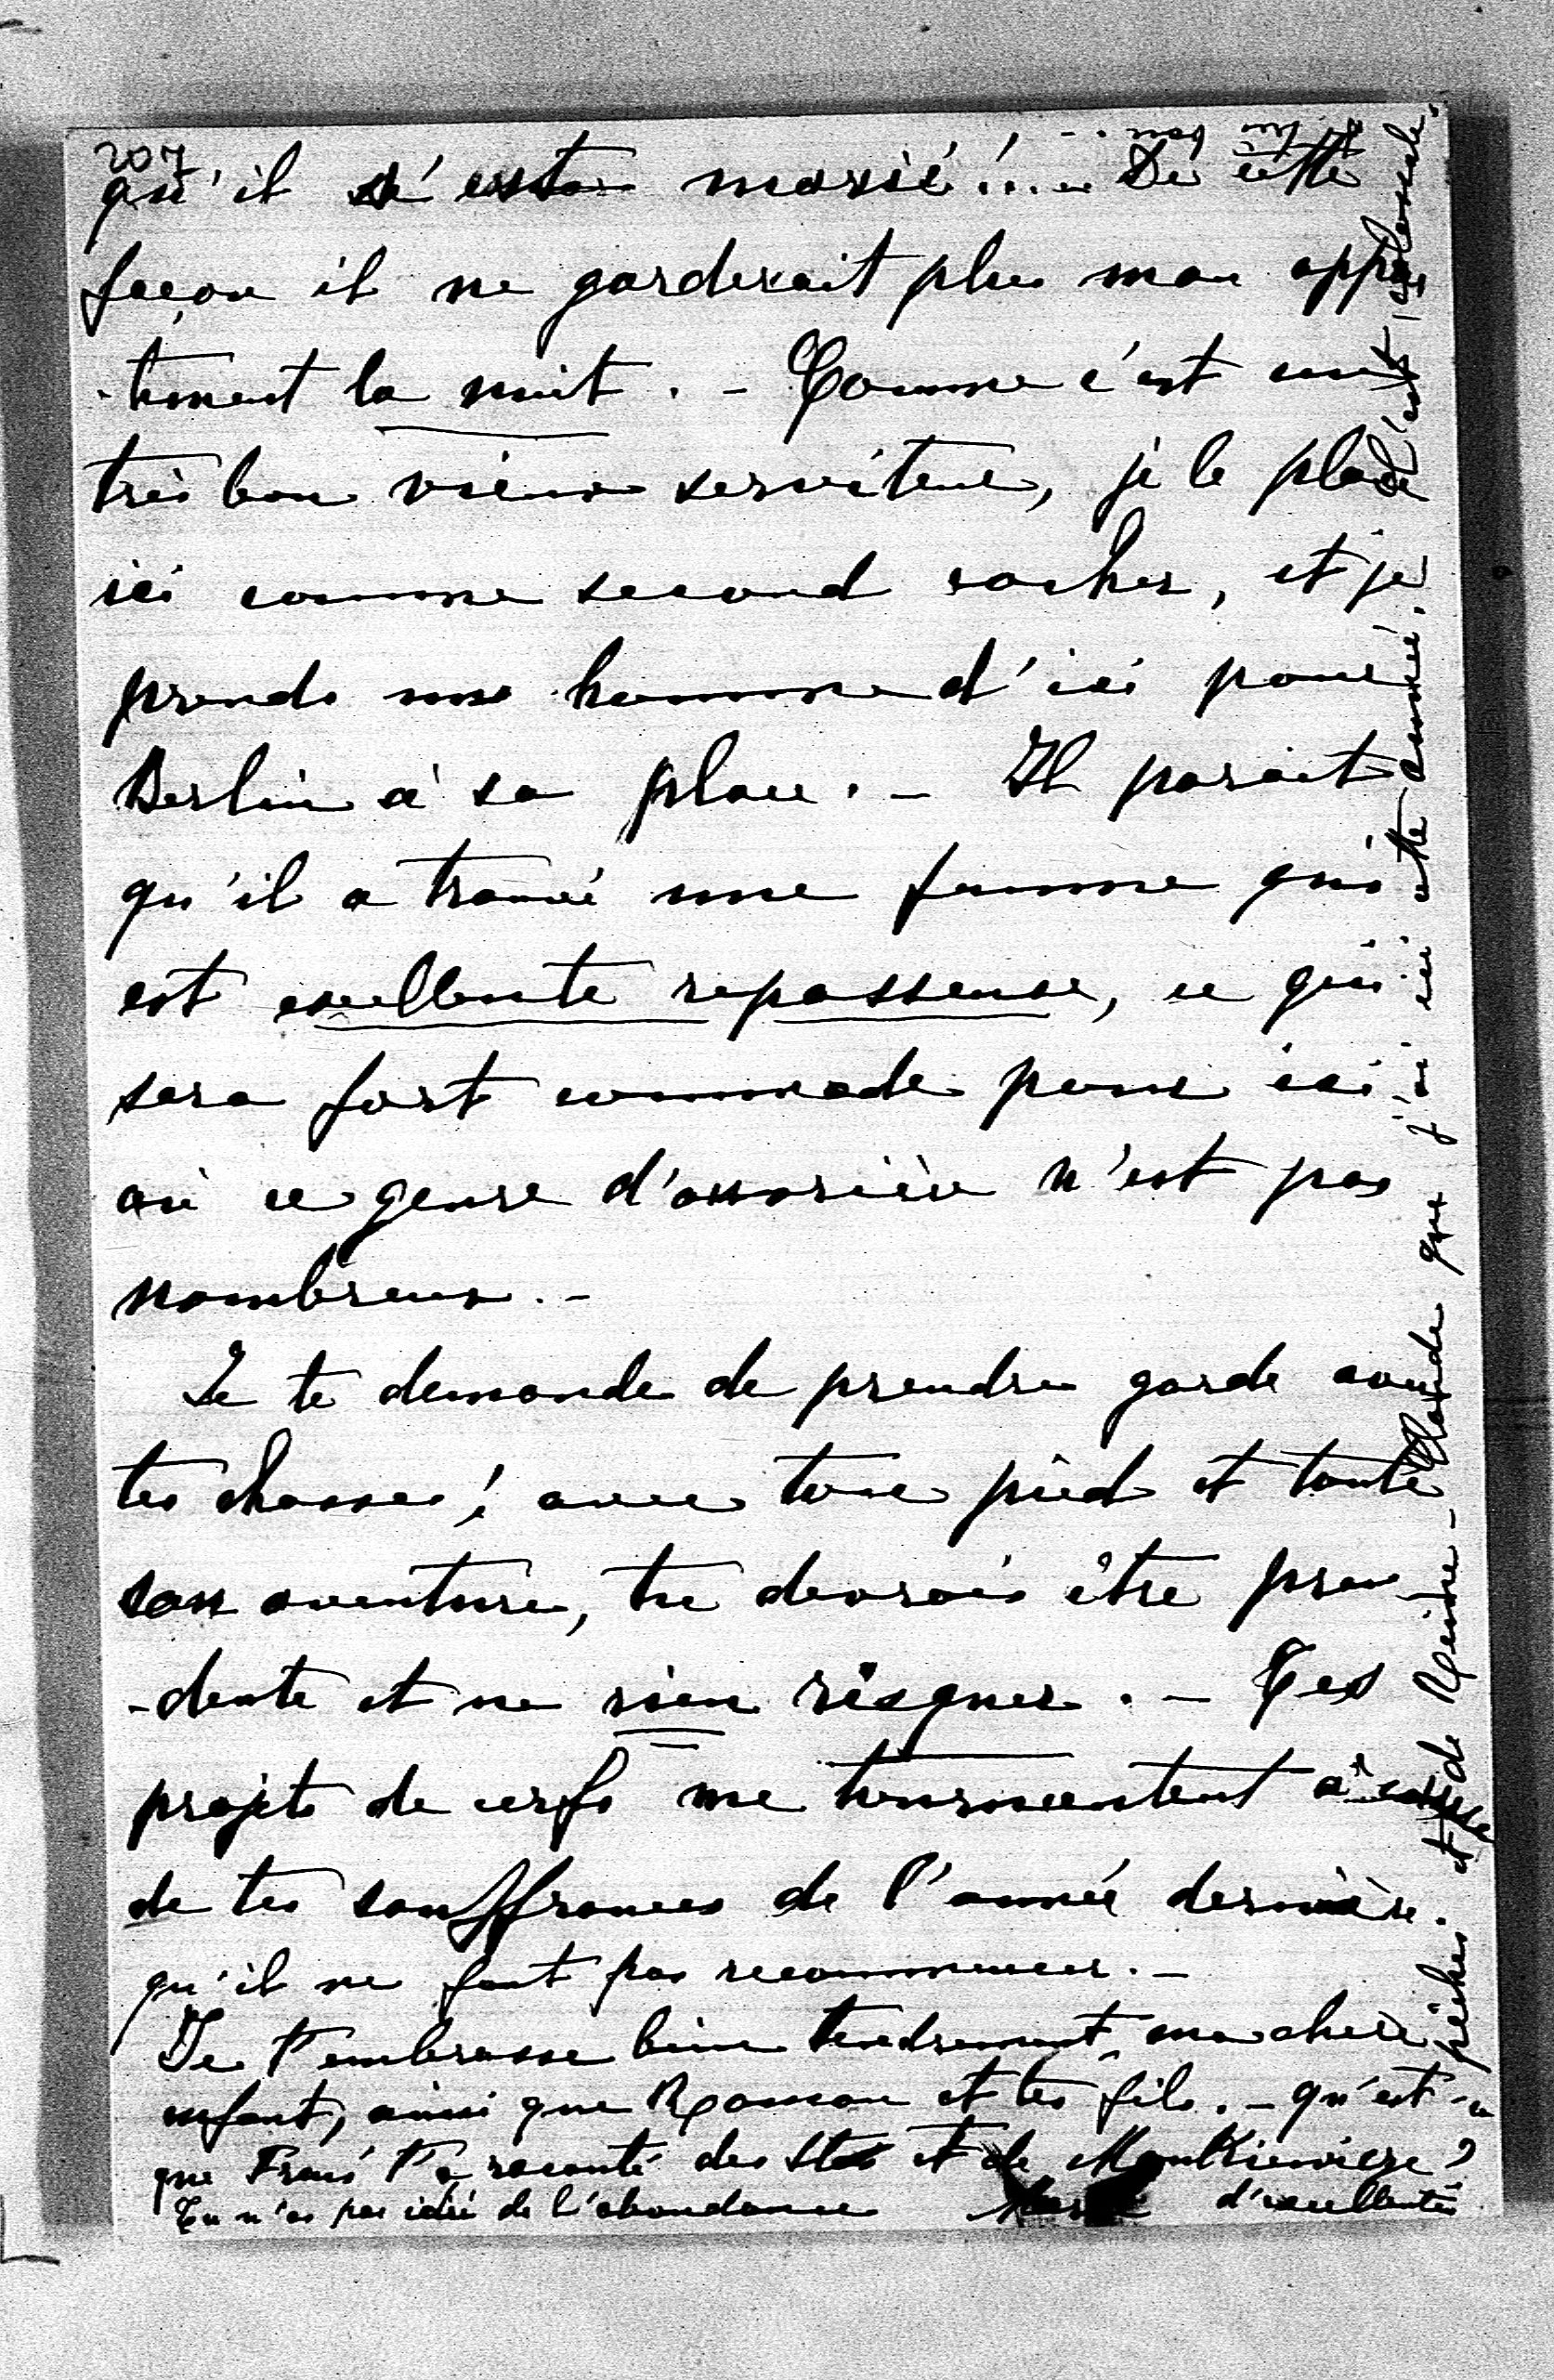 207
qu'il s'est marié!... De cette
façon il ne garderait plus mon appar
-tement la nuit. - Comme c'est un
très bon vieux serviteur, je le place
ici comme second cocher, et je
prends un homme d'ici pour
Berlin à sa place. - Il parait
qu'il a trouvé une femme qui
est excellente repasseuse, ce qui
sera fort commode pour ici
où ce genre d'ouvrière n'est pas
nombreux. -
Je te demande de prendre garde avec
tes chasses! avec ton pied et toute
son aventure, tu devrais être pru-
-dente et ne rien risquer. - Tes
projets de cerfs me tourmentent à cause
de tes souffrances de l'année dernière.
qu'il ne faut pas recommencer. -
Je t'embrasse bien tendrement, ma chère
enfant, ainsi que Roman et tes fils. - qu'est-ce
que t'a raconté des et de
Tu n'as pas idée de l'abondance d'excellentes
pêches et de Reine-Claude que j'ai ici cette année.
C'est colossal.